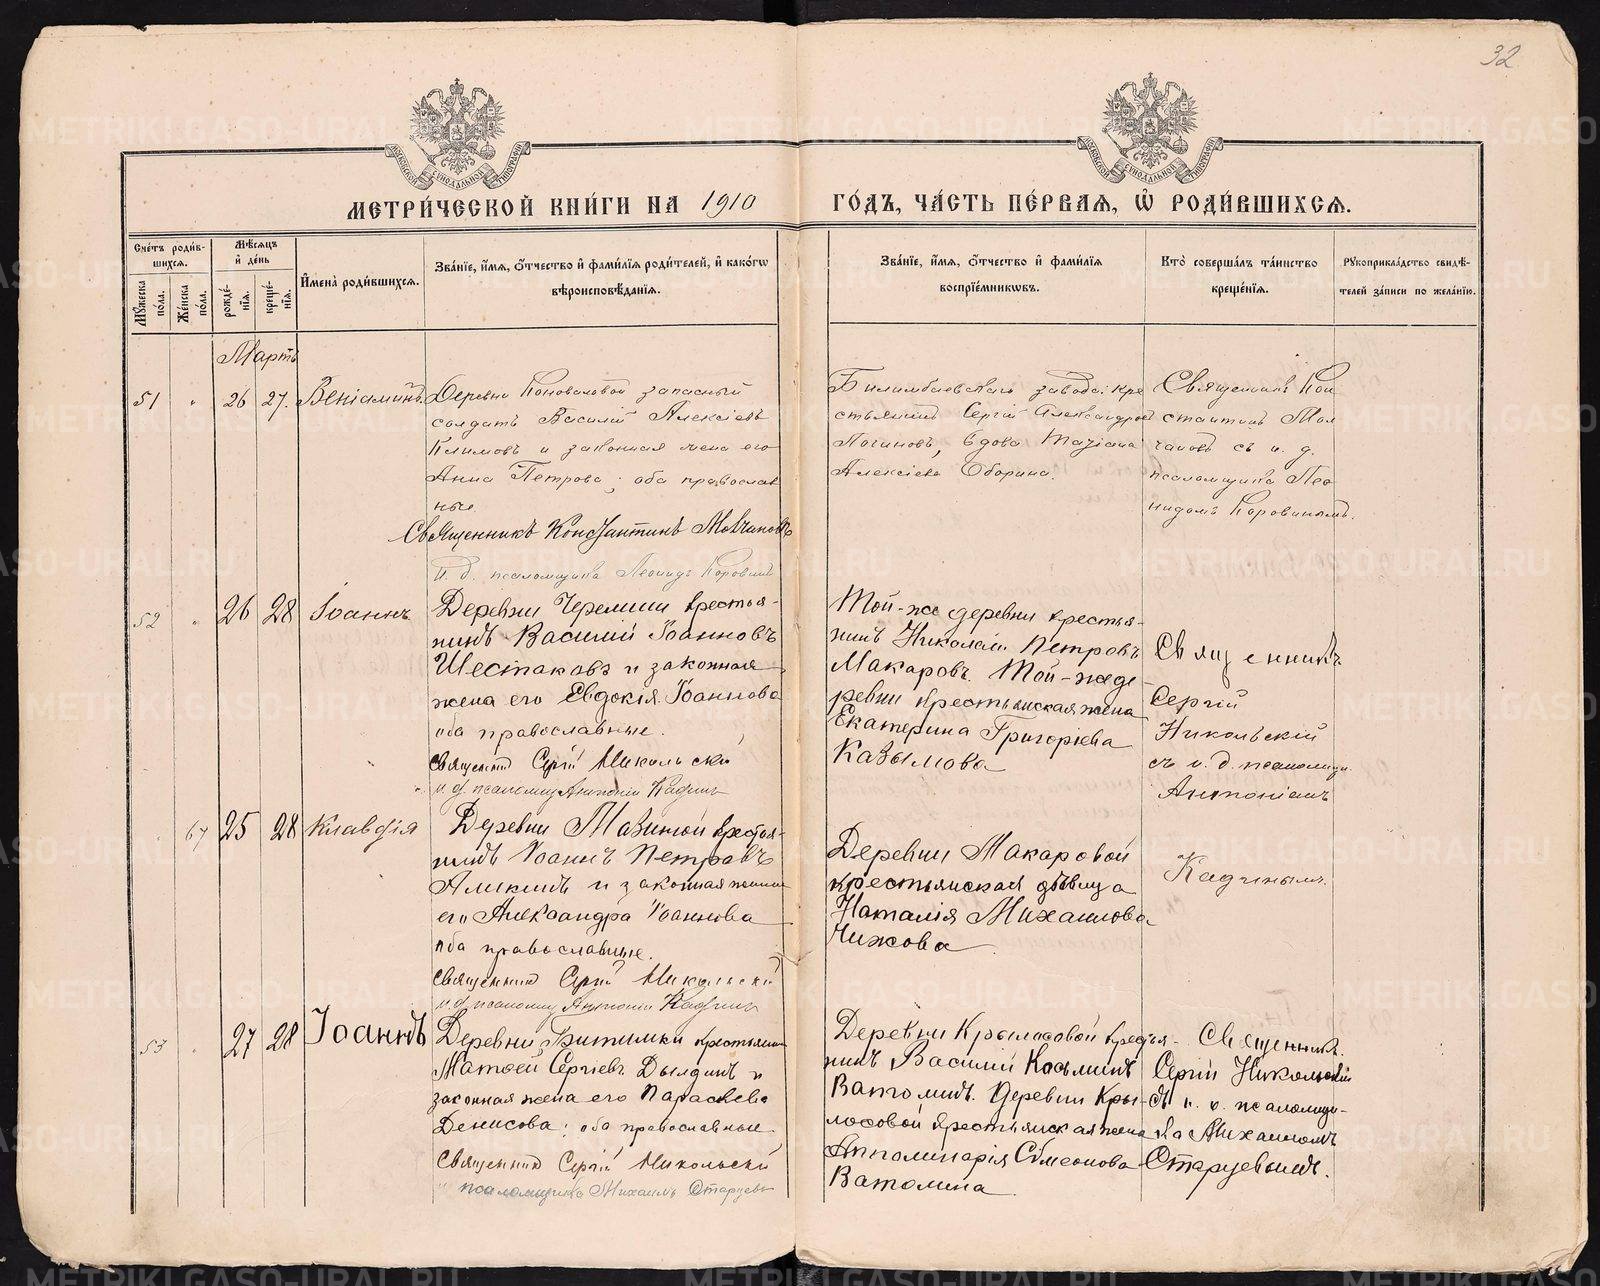 32
МЕТРИ́ЧЕСКОЙ КНИ́ГИ НА 1910 ГО́ДЪ, ЧА́СТЬ ПЕ́РВАЯ, Ѡ҆ РОДИ́ВШИХСѦ.
Сче́тъ роди́в-
шихсѧ.
Мꙋ́жеска по́ла.
Же́нска по́ла.
Мѣ́сѧцъ
и҆ де́нь
рожде́-
нїѧ.
креще́-
нїѧ.
И҆мена̀ роди́вшихсѧ.
Зва́нїе, и҆́мѧ, ѻ҆́тчество и҆ фами́лїѧ роди́телей, и҆ како́гѡ
вѣроисповѣ́данїѧ.
Зва́нїе, и҆́мѧ, ѻ҆́тчество и҆ фами́лїѧ
воспрїе́мникѡвъ.
Кто̀ соверша́лъ та́инство
креще́нїѧ.
Рꙋкоприкла́дство свидѣ́-
телей за́писи по жела́нїю.
Мартъ
51 " 26 27. Веніаминъ.
Деревни Коноваловой запасный
солдатъ Василій Алексіевъ
Климовъ и законная жена его
Анна Петрова; оба православ
ные.
Священникъ Константинъ Молчановъ
и. д. псаломщика Леонидъ Коровинъ
Билимбаевскаго завода: кре
стьянинъ Сергій Александровъ
Логиновъ, вдова Татіана
Алексіева Оборина.
Священникъ Кон
стантинъ Мол
чановъ съ и. д.
псаломщика Лео
нидомъ Коровинымъ.
52 " 26 28 Іоаннъ
Деревни Черемши крестья-
нинъ Василій Іоанновъ
Шестаковъ и законная
жена его Евдокія Іоаннова
оба православные.
Священникъ Сергій Никольскій
и. д. псаломщ Антоній Кадчинъ
Той-же деревни крестья-
нинъ Николай Петровъ
Макаровъ. Той-же де-
ревни крестьянская жена
Екатерина Григорьева
Казымова
Священникъ
Сергій
Никольскій
съ и. д. псаломщи.
Антоніемъ
67 25 28 Клавдія
Деревни Мазиной крестья-
нинъ Іоаннъ Петровъ
Аликинъ и законная жена
его Александра Іоаннова
оба православные.
Священникъ Сергій Никольскій
и. д. псаломщ Антоній Кадчинъ
Деревни Макаровой
крестьянская дѣвица
Наталія Михаилова
Чижова
Кадчинымъ.
53 " 27 28 Іоаннъ
Деревни Битимки крестьянинъ
Матѳей Сергіевъ Дылдинъ и
законная жена его Параскева
Денисова; оба православные
Священникъ Сергій Никольскій
псаломщика Михаилъ Старцевъ
Деревни Крыласовой крестья-
нинъ Василій Косьминъ
Ватолинъ. Деревни Кры-
лосовой крестьянская жена
Апполинарія Симеонова
Ватолина
Священникъ.
Сергій Никольскій
съ и. о. псаломщи-
ка Михаиломъ
Старцевымъ.